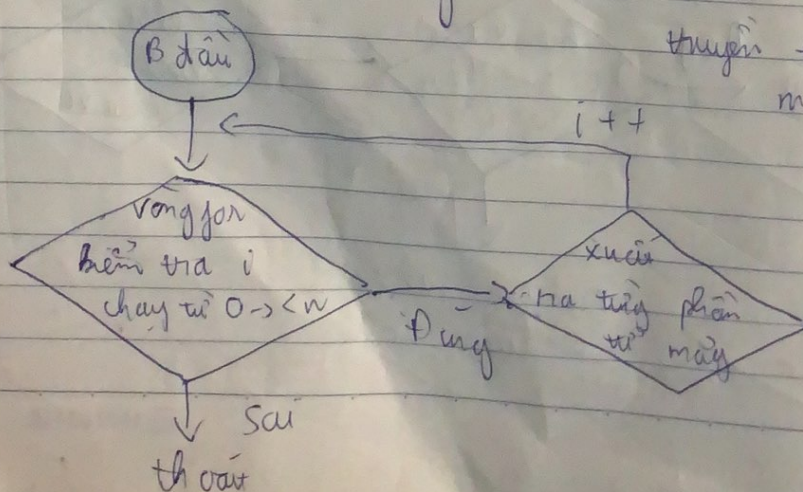 B đầu
truyền -
m
i++
vòng for
kiểm tra i
chạy từ 0 -> < n
Đúng
xuất
ra từng phần
tử mảng
Sai
thoát